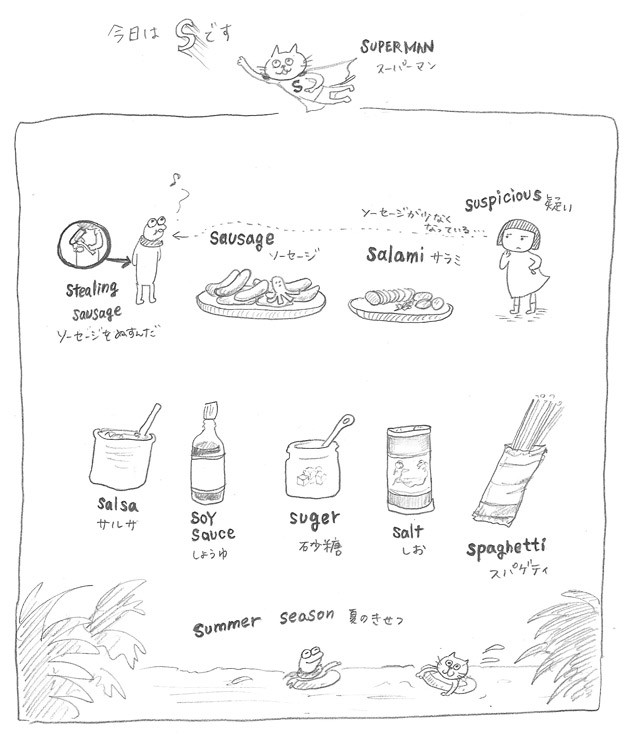 今日はSです
SUPERMAN
スーパーマン
S
suspicious 疑い
ソーセージが少なく
なっている…
sausage
ソーセージ
salami サラミ
stealing
sausage
ソーセージをぬすんだ
salsa
サルサ
soy
sauce
しょうゆ
suger
石少糖
salt
しお
spaghetti
スパゲティ
summer season 夏のきせつ